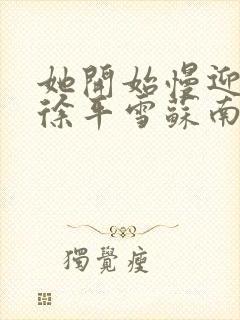 她開始慢迎
徐平雪蘇南
獨覺瘦